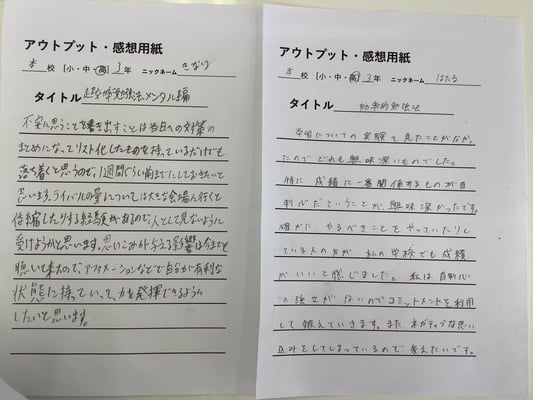 アウトプット・感想用紙
本 校 [小・中・高] 3年 ニックネーム きなり
タイトル 超効率勉強法メンタル編
不安に思うことを書き出すことは当日への対策の
まとめになってリスト化したものを持っているだけでも
落ち着くと思うので、1週間ぐらい前までにしておきたいと
思います。ライバルの量については大きな会場に行くと
萎縮したりする経験があるので、人として見ないように
受けようかと思います。思いこみが与える影響は今までも
聴いて来たので、アファメーションなどで自分が有利な
状態に持っていって、力を発揮できるように
したいと思います。
アウトプット・感想用紙
本 校 [小・中・高] 3年 ニックネーム はたる
タイトル 効率的勉強法
学習についての実験を見たことがなか
ったのでどれも興味深いものでした。
特に成績に一番関係するものが自
制心だということが、興味深かったです。
確かに、やるべきことをやっていたりし
ている人の方が私の学校でも成績
がいいと感じました。私は自制心
の強さがないのでコミットメントを利用
して鍛えていきます。また、ネガティブな思い
込みをしてしまっているので変えたいです。